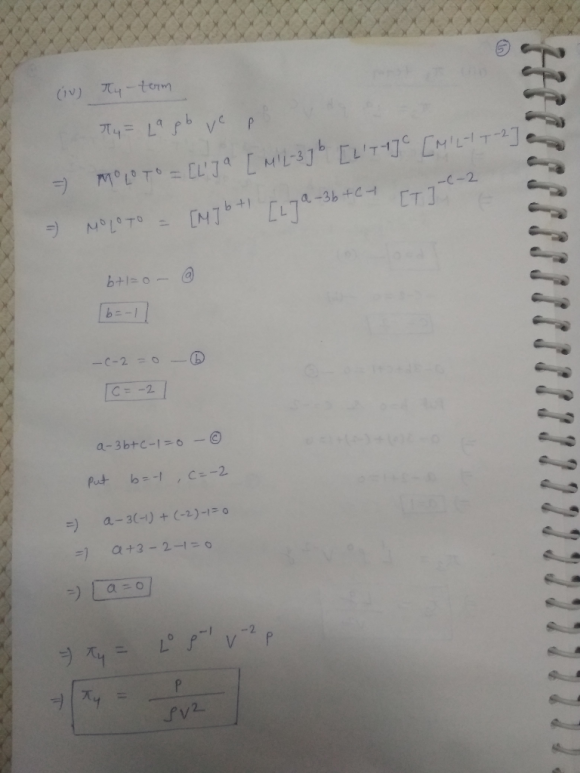 ⑤
(iv) π₄-term
π₄ = Lᵃ ρᵇ Vᶜ P
=) M⁰L⁰T⁰ = [L¹]ᵃ [M¹L⁻³]ᵇ [L¹T⁻¹]ᶜ [M¹L⁻¹T⁻²]
=) M⁰L⁰T⁰ = [M]^{b+1} [L]^{a-3b+c-1} [T]^{-c-2}
b+1=0 — ⓐ
b=-1
-c-2 = 0 — ⓑ
c = -2
a-3b+c-1=0 — ⓒ
Put b=-1, c=-2
=) a-3(-1)+(-2)-1=0
=) a+3-2-1=0
=) a=0
=) π₄ = L⁰ ρ⁻¹ V⁻² P
=) π₄ = P / ρV²